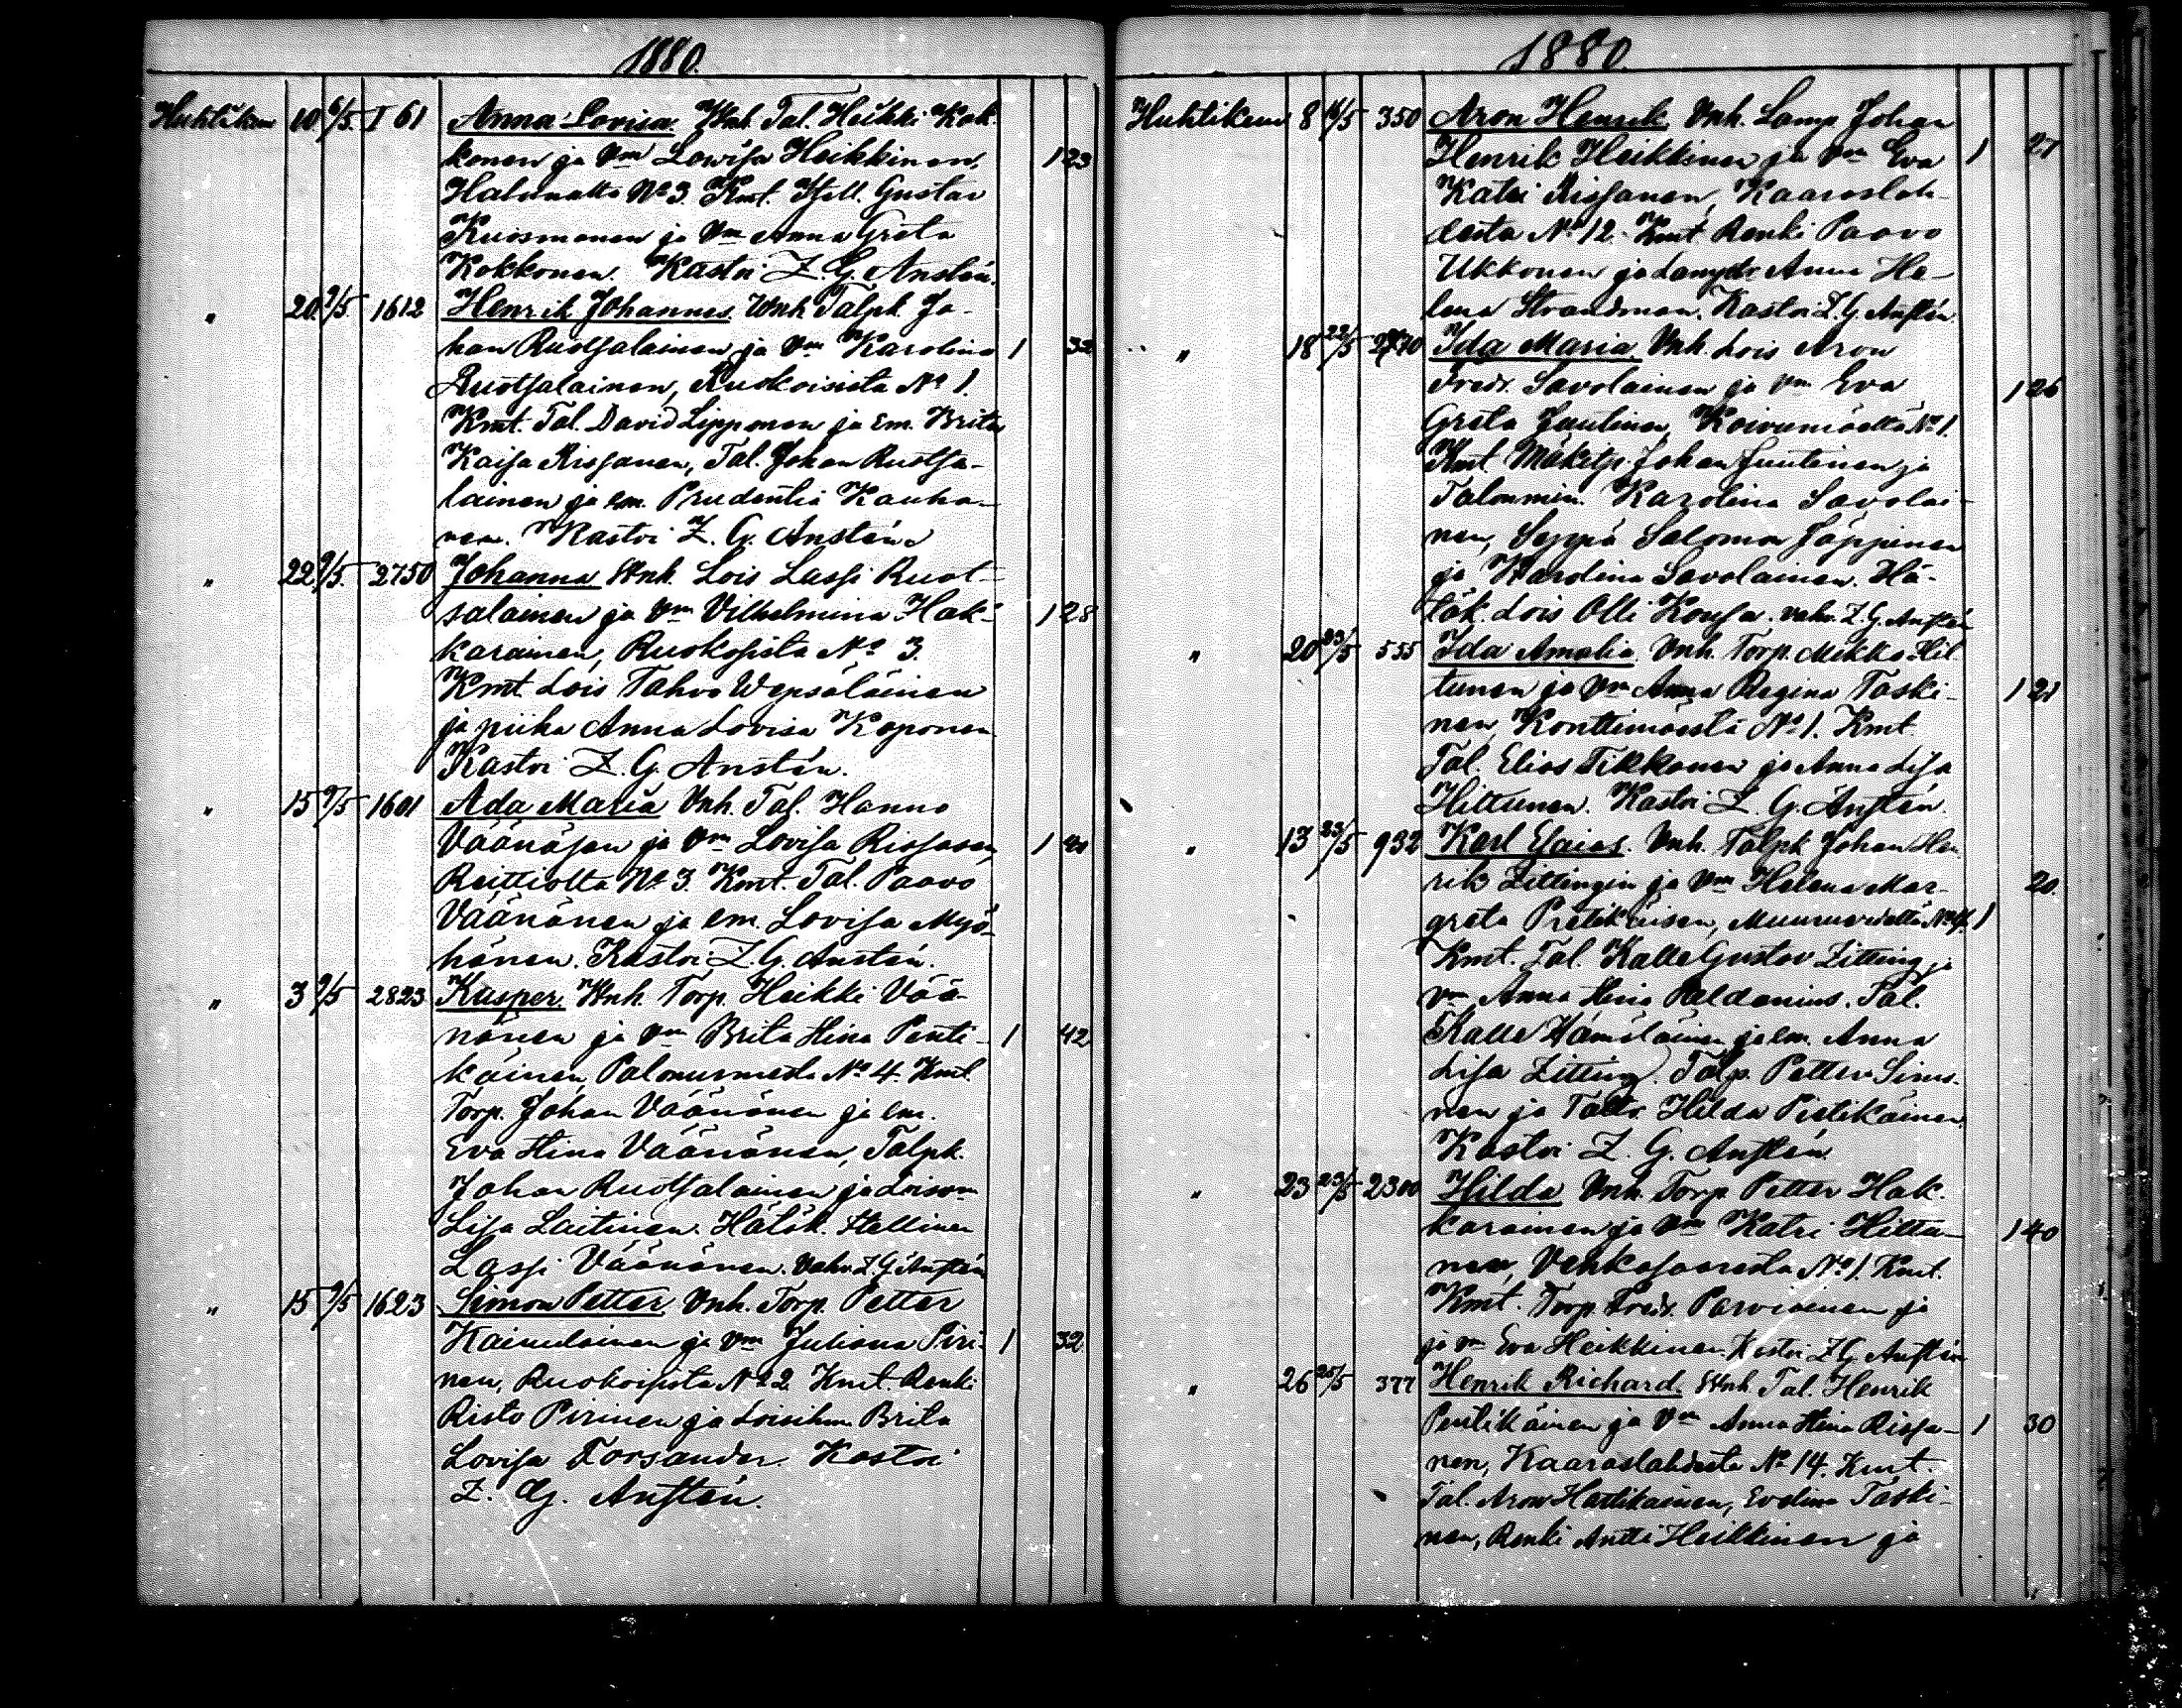 1880.
Huhtikuu 10 9/5 I 61 Anna Lovisa. Vnh. Tal. Heikki Kok-
konen ja Vm Lowisa Heikkinen, 1 23
No 3. Kmt. Gustav
Kuosmanen ja Vm Anna Greta
Kokkonen. Kastoi Z. G. Anstén.
" 20 9/5 1612 Henrik Johannes. Vnh. Talpk. Jo-
han Ruotsalainen ja Vm Karolina 1 32
Ruotsalainen, Ruokoisista No 1.
Kmt. Tal. David Lipponen ja em. Brita
Kaisa Rissanen, Tal. Johan Ruotsa-
lainen ja em. Prudentia Kauha-
nen. Kastoi Z. G. Anstén.
" 22 9/5 2750 Johanna Vnh. Lois Lassi Ruot-
salainen ja Vm Vilhelmina Hak- 1 28
karainen, Ruokosista No 3.
Kmt. Lois Tahvo Wepsäläinen
ja piika Anna Lovisa Koponen
Kastoi Z. G. Anstén.
" 15 9/5 1601 Ada Maria Vnh. Tal. Hannu
Väänäsen ja Vm Lovisa Rissasen, 1
Reittiolta No 3. Kmt. Tal. Paavo
Väänänen ja em. Lovisa Myö-
hänen. Kastoi Z. G. Anstén.
" 3 9/5 2823 Kasper. Vnh. Torp. Heikki Vää-
nänen ja Vm Brita Stina Penti- 1 42
käinen, Palonurmesta No 4. Kmt.
Torp. Johan Väänänen ja em.
Eva Stina Väänänen, Talpk.
Johan Ruotsalainen ja Loisvm
Lisa Laitinen. Hätäk. Itellinen
Lassi Väänänen. Vahv. Z. G. Anstén
" 15 9/5 1623 Simon Petter. Vnh. Torp. Petter
Kainulainen ja Vm Juliana Piri- 1 32
nen, Ruokoisista No 2 Kmt. Renki
Risto Pirinen ja Brita
Lovisa Forsander. Kastoi
Z. G. Anstén.
1880.
Huhtikuu 8 16/5 350 Aron Henrik. Vnh. Lamp. Johan
Henrik Heikkinen ja Vm Eva 1 27
Katri Rissanen, Kaaraslah-
desta No 12. Kmt. Renki Paavo
Ukkonen ja Anna He-
lena Strandman. Kastoi Z. G. Anstén.
" 18 22/5 Ida Maria Vnh. Lois Aron
Fredr. Savolainen ja Vm Eva 1 26
Greta Juutinen, Koivumäeltä No 1.
Kmt. Mäkitp. Johan Juutinen ja
Karolina Savolai-
nen, Seppä Salomon Jäppinen
ja Karolina Savolainen. Hä-
täk. Lois Olli Kousa. Vahv. Z. G. Anstén
" 20 23/5 555 Ida Amalia. Vnh. Torp. Mikko Hil-
tunen ja Vm Anna Regina Taski- 1 21
nen, Konttimäestä No 1. Kmt.
Tal. Elias Tikkanen ja Anna Lisa
Hiltunen. Kastoi Z. G. Anstén.
" 13 23/5 932 Karl Esaias. Vnh. Talpk. Johan Hen-
rik Zittingin ja Vm Helena Mar- 20
greta Pietikäisen, Muuruvedeltä No 4. 1
Kmt. Tal. Kalle Gustav Zitting ja
Vm Anna Stina Paldanius. Tal.
Kalle Hämäläinen ja em. Anna
Lisa Zitting. Talp. Petter
nen ja Taltr. Hilda Pietikäinen.
Kastoi Z. G. Anstén
" 23 23/5 2300 Hilda Vnh. Torp. Petter Hak-
karainen ja Vm Katri Hiltu- 1 40
nen, Vehkasaaresta No 1. Kmt.
Kmt. Torp. Fredr. Parviainen ja
ja Vm Eva Heikkinen. Kastoi Z. G. Anstén
" 26 25/5 377 Henrik Richard. Vnh. Tal. Henrik
Pentikäinen ja Vm Anna Stina Rissa- 1 30
nen, Kaaraslahdesta No 14. Kmt.
Tal. Aron Hartikainen, Evelina Taski-
nen, Renki Antti Heikkinen ja